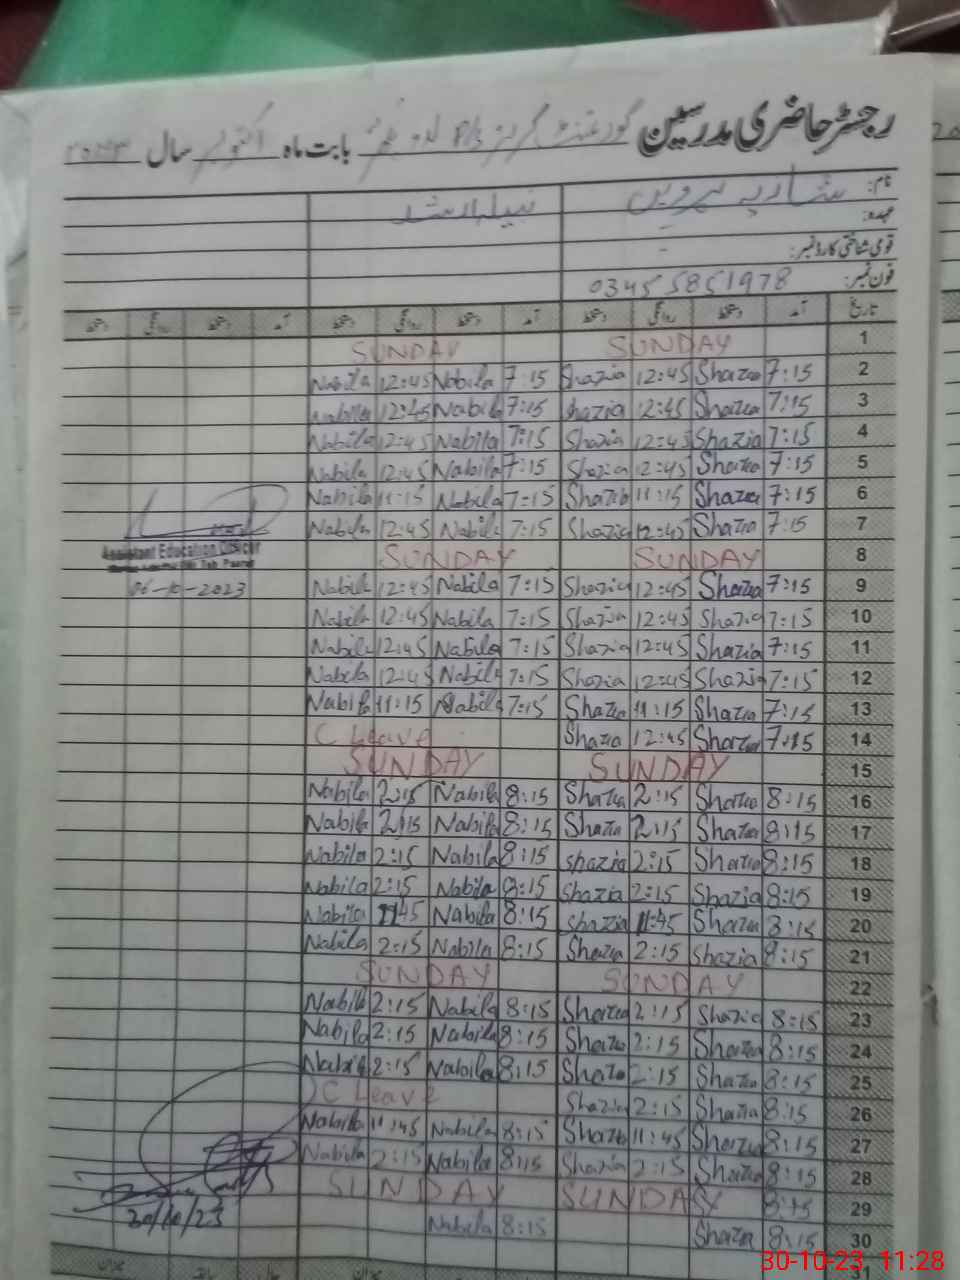 رجسٹر حاضری مدرسین گورنمنٹ گرلز P/S بابت ماہ اکتوبر سال ۲۰۲۳
نام: شازیہ پروین نبیلہ ارشد
عہدہ: -
قومی شناختی کارڈ نمبر: -
فون نمبر: 03455851978
تاریخ آمد دستخط روانگی دستخط آمد دستخط روانگی دستخط آمد دستخط روانگی دستخط
1 SUNDAY SUNDAY
2 7:15 Shazia 12:45 Shazia 7:15 Nabila 12:45 Nabila
3 7:15 Shazia 12:45 Shazia 7:15 Nabila 12:45 Nabila
4 7:15 Shazia 12:45 Shazia 7:15 Nabila 12:45 Nabila
5 7:15 Shazia 12:45 Shazia 7:15 Nabila 12:45 Nabila
6 7:15 Shazia 11:15 Shazia 7:15 Nabila 11:15 Nabila
7 7:15 Shazia 12:45 Shazia 7:15 Nabila 12:45 Nabila
Assistant Education Officer
8 SUNDAY SUNDAY
9 7:15 Shazia 12:45 Shazia 7:15 Nabila 12:45 Nabila
06-10-2023
10 7:15 Shazia 12:45 Shazia 7:15 Nabila 12:45 Nabila
11 7:15 Shazia 12:45 Shazia 7:15 Nabila 12:45 Nabila
12 7:15 Shazia 12:45 Shazia 7:15 Nabila 12:45 Nabila
13 7:15 Shazia 11:15 Shazia 7:15 Nabila 11:15 Nabila
14 7:15 Shazia 12:45 Shazia C Leave
15 SUNDAY SUNDAY
16 8:15 Shazia 2:15 Shazia 8:15 Nabila 2:15 Nabila
17 8:15 Shazia 2:15 Shazia 8:15 Nabila 2:15 Nabila
18 8:15 Shazia 2:15 Shazia 8:15 Nabila 2:15 Nabila
19 8:15 Shazia 2:15 Shazia 8:15 Nabila 2:15 Nabila
20 8:15 Shazia 11:45 Shazia 8:15 Nabila 11:45 Nabila
21 8:15 Shazia 2:15 Shazia 8:15 Nabila 2:15 Nabila
22 SUNDAY SUNDAY
23 8:15 Shazia 2:15 Shazia 8:15 Nabila 2:15 Nabila
24 8:15 Shazia 2:15 Shazia 8:15 Nabila 2:15 Nabila
25 8:15 Shazia 2:15 Shazia 8:15 Nabila 2:15 Nabila
26 8:15 Shazia 2:15 Shazia C Leave
27 8:15 Shazia 11:45 Shazia 8:15 Nabila 11:45 Nabila
28 8:15 Shazia 2:15 Shazia 8:15 Nabila 2:15 Nabila
29 8:15 SUNDAY SUNDAY
30/10/23
30 8:15 Shazia 8:15 Nabila
31
30-10-23 11:28